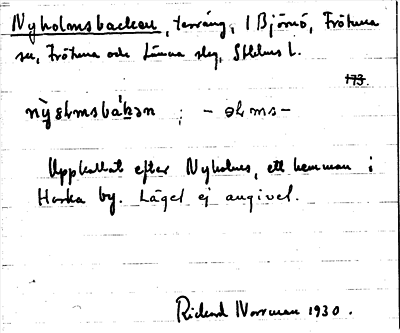 Nyholmsbacken, terräng, i Björnö, Frötuna
sn, Frötuna och Länna slg, Sthlms l.
173.
nỳɞɫmsbákən ; – əɫms –
Uppkallat efter Nyholms, ett hemman i
Harka by. Läget ej angivet.
Rickard Norrman 1930.